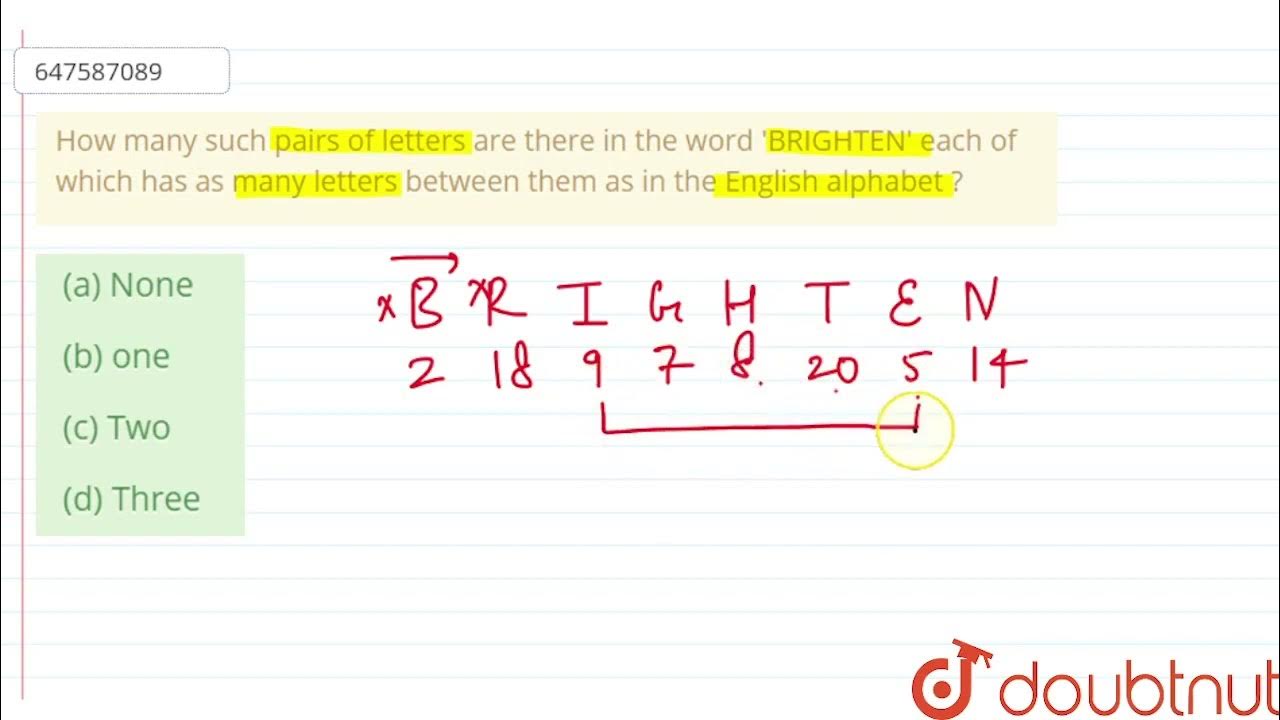 647587089
How many such pairs of letters are there in the word 'BRIGHTEN' each of
which has as many letters between them as in the English alphabet ?
(a) None
(b) one
(c) Two
(d) Three
x B x R I G H T E N
2 18 9 7 8 20 5 14
doubtnut